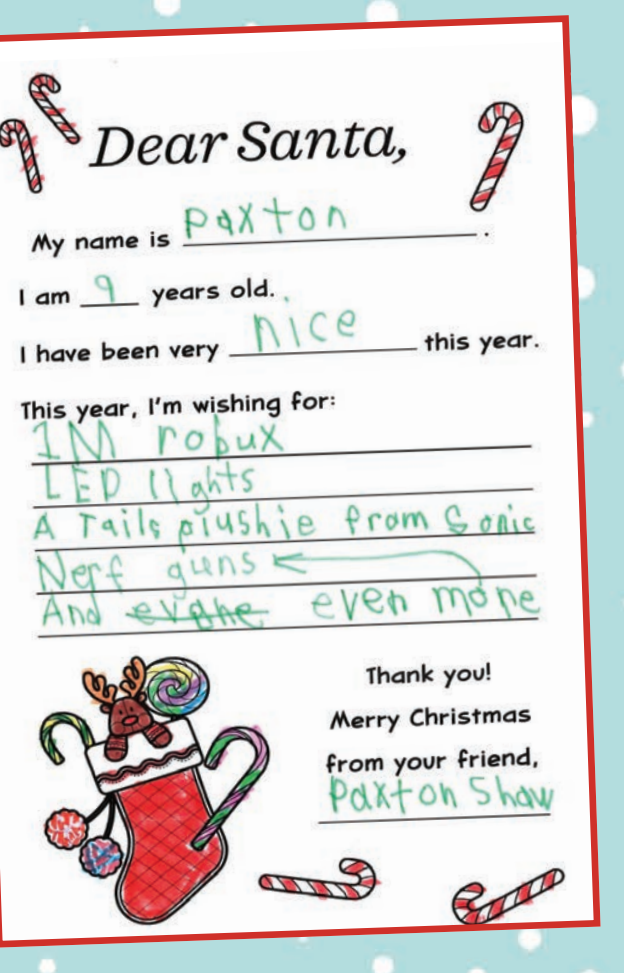 Dear Santa,
My name is Paxton.
I am 9 years old.
I have been very nice this year.
This year, I'm wishing for:
1M robux
LED lights
A Tails plushie from Sonic
Nerf guns
And evone even more
Thank you!
Merry Christmas
from your friend,
Paxton Shaw